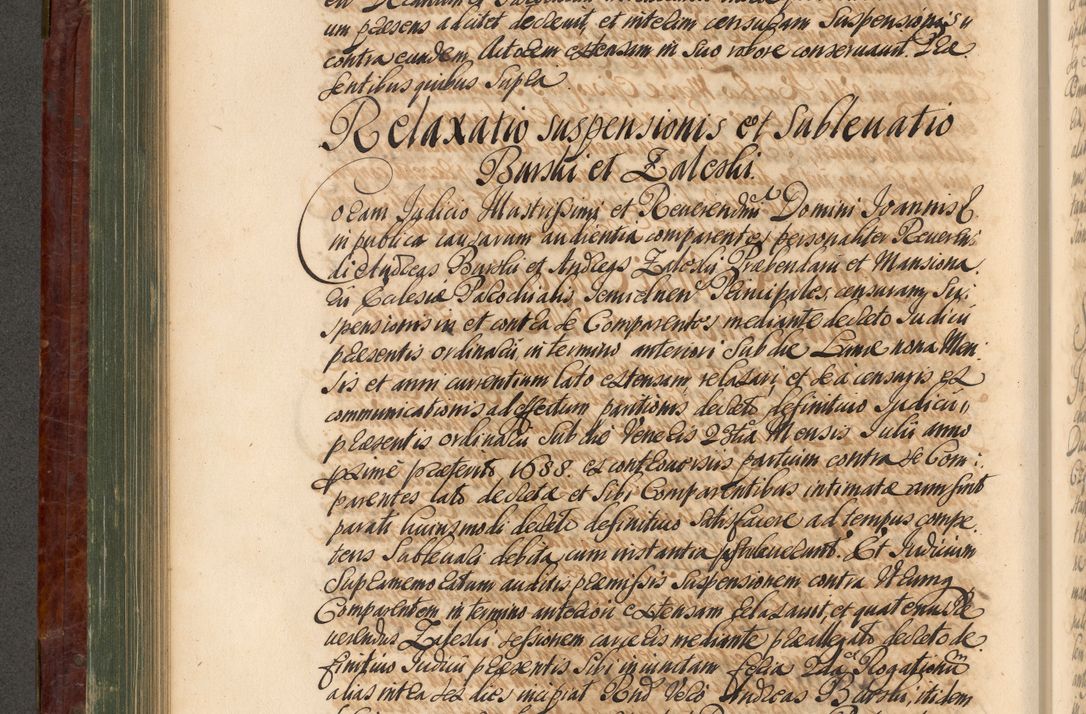 um praesens adcitet decreuit, et interim censuram Suspensionis
contra eundem Actorem extensam in suo robore conseruauit. Prae
sentibus quibus supra
Relaxatio suspensionis et subleuatio
Burski et Zaleski.
Coram Judicio Illustrissimi et Reuerendissimi Domini Joannis E.
in publica causarum audientia comparentes personaliter Reueren
di Andreas Burski et Andreas Zaleski Praebendarii et Mansiona
rii Ecclesiae Parochialis Principales, censuram Sus
pensionis in et contra se Comparentes mediante decreto Judicii
praesentis ordinarii, in termino anteriori sub die Lunae nona Men
sis et anni currentium lato extensam relaxari et se a censuris ex
communicationis ad effectum paritionis decreto definitiuo Judicii
praesentis ordinarii sub die Veneris 23tia Mensis Julii anno
proxime praeterito 1688. ex controuersiis partium contra se Com
parentes lato decretae et sibi Comparentibus intimatae cum sint
parati huiusmodi decreto definitiuo satisfacere ad tempus compe
tens subleuari debita cum instantia postulauerunt. Et Judicium
supramemoratum auditis praemissis Suspensionem contra utrumq
Comparentem in termino anteriori extensam relaxauit, et quatenus Re
uerendus Zaleski sessionem carceris mediante praeallegato decreto de
finitiuo Judicii praesentis sibi iniunctam feria 2da Rogationum
alias intra sex dies incipiat Rnd Vero Andreas Burski itidem